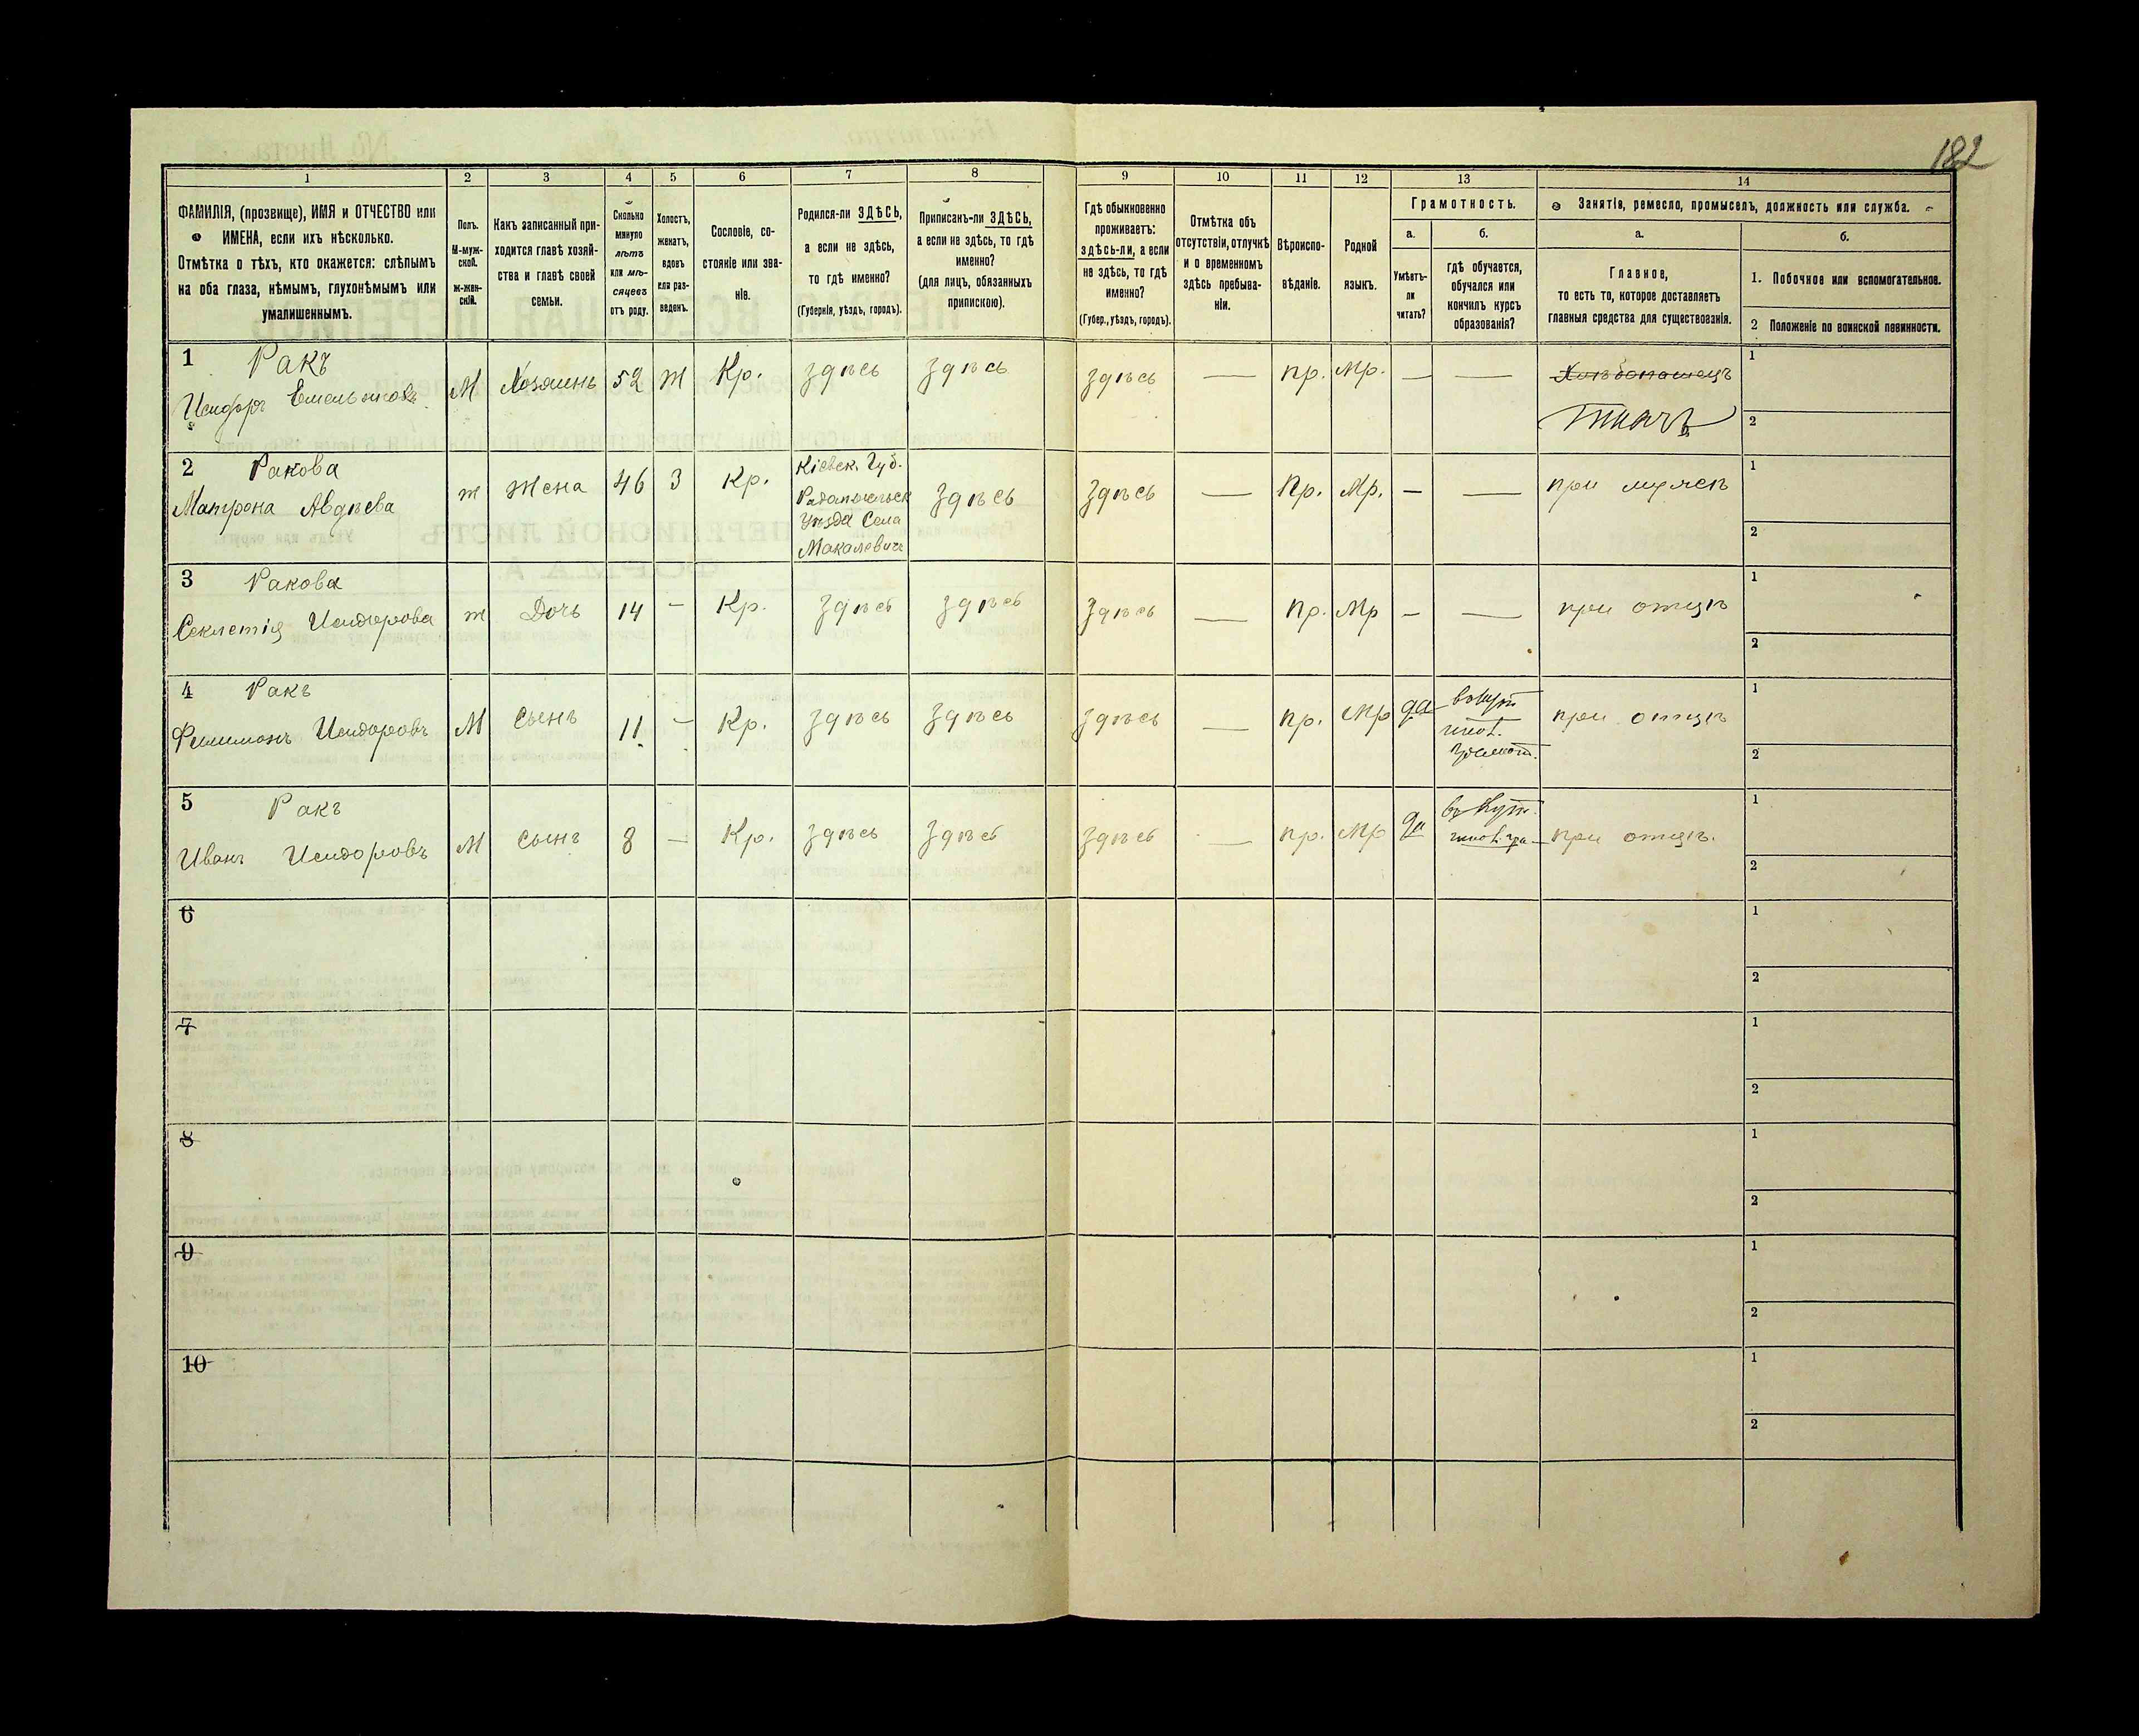 182
1
2
3
4
5
6
7
8
9
10
11
12
13
14
ФАМИЛІЯ, (прозвище), ИМЯ и ОТЧЕСТВО или
ИМЕНА, если ихъ нѣсколько.
Отмѣтка о тѣхъ, кто окажется: слѣпымъ
на оба глаза, нѣмымъ, глухонѣмымъ или
умалишеннымъ.
Полъ.
М-муж-
ской.
ж-жен-
скій.
Какъ записанный при-
ходится главѣ хозяй-
ства и главѣ своей
семьи.
Сколько
минуло
лѣтъ
или мѣ-
сяцевъ
отъ роду.
Холостъ,
женатъ,
вдовъ
или раз-
веденъ.
Сословіе, со-
стояніе или зва-
ніе.
Родился-ли ЗДѢСЬ,
а если не здѣсь,
то гдѣ именно?
(Губернія, уѣздъ, городъ).
Приписанъ-ли ЗДѢСЬ,
а если не здѣсь, то гдѣ
именно?
(для лицъ, обязанныхъ
припискою).
Гдѣ обыкновенно
проживаетъ:
здѣсь-ли, а если
не здѣсь, то гдѣ
именно?
(Губер., уѣздъ, городъ).
Отмѣтка объ
отсутствіи, отлучкѣ
и о временномъ
здѣсь пребыва-
ніи.
Вѣроиспо-
вѣданіе.
Родной
языкъ.
Грамотность.
а.
Умѣетъ-
ли
читать?
б.
гдѣ обучается,
обучался или
кончилъ курсъ
образованія?
Занятіе, ремесло, промыселъ, должность или служба.
а.
Главное,
то есть то, которое доставляетъ
главныя средства для существованія.
б.
1. Побочное или вспомогательное.
2 Положеніе по воинской повинности.
1 Ракъ
Исидоръ Емельяновъ
М Хозяинъ 52 Ж Кр. здѣсь здѣсь здѣсь — пр. Мр. — — Хлѣбопашецъ
Ткачъ
1
2
2 Ракова
Матрона Авдѣева
ж Жена 46 З Кр.
Кіевск. Губ.
Радомысльск
Уѣзда Села
Макалевичи
здѣсь здѣсь — Пр. Мр. — — при мужѣ
1
2
3 Ракова
Секлетія Исидорова
ж Дочь 14 — Кр. здѣсь здѣсь здѣсь — Пр. Мр — — при отцѣ
1
2
4 Ракъ
Филимонъ Исидоровъ
М Сынъ 11 — Кр. здѣсь здѣсь здѣсь — пр. Мр да
при отцѣ
1
2
5 Ракъ
Иванъ Исидоровъ
М Сынъ 8 — Кр. здѣсь здѣсь здѣсь — пр. Мр да
при отцѣ.
1
2
6
1
2
7
1
2
8
1
2
9
1
2
10
1
2